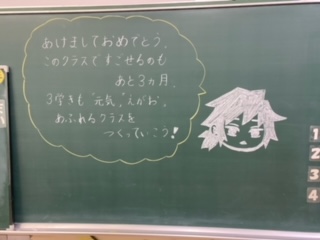 あけましておめでとう。
このクラスですごせるのも
あと3ヵ月。
3学きも"元気""えがお"
あふれるクラスを
つくっていこう!
1
2
3
4